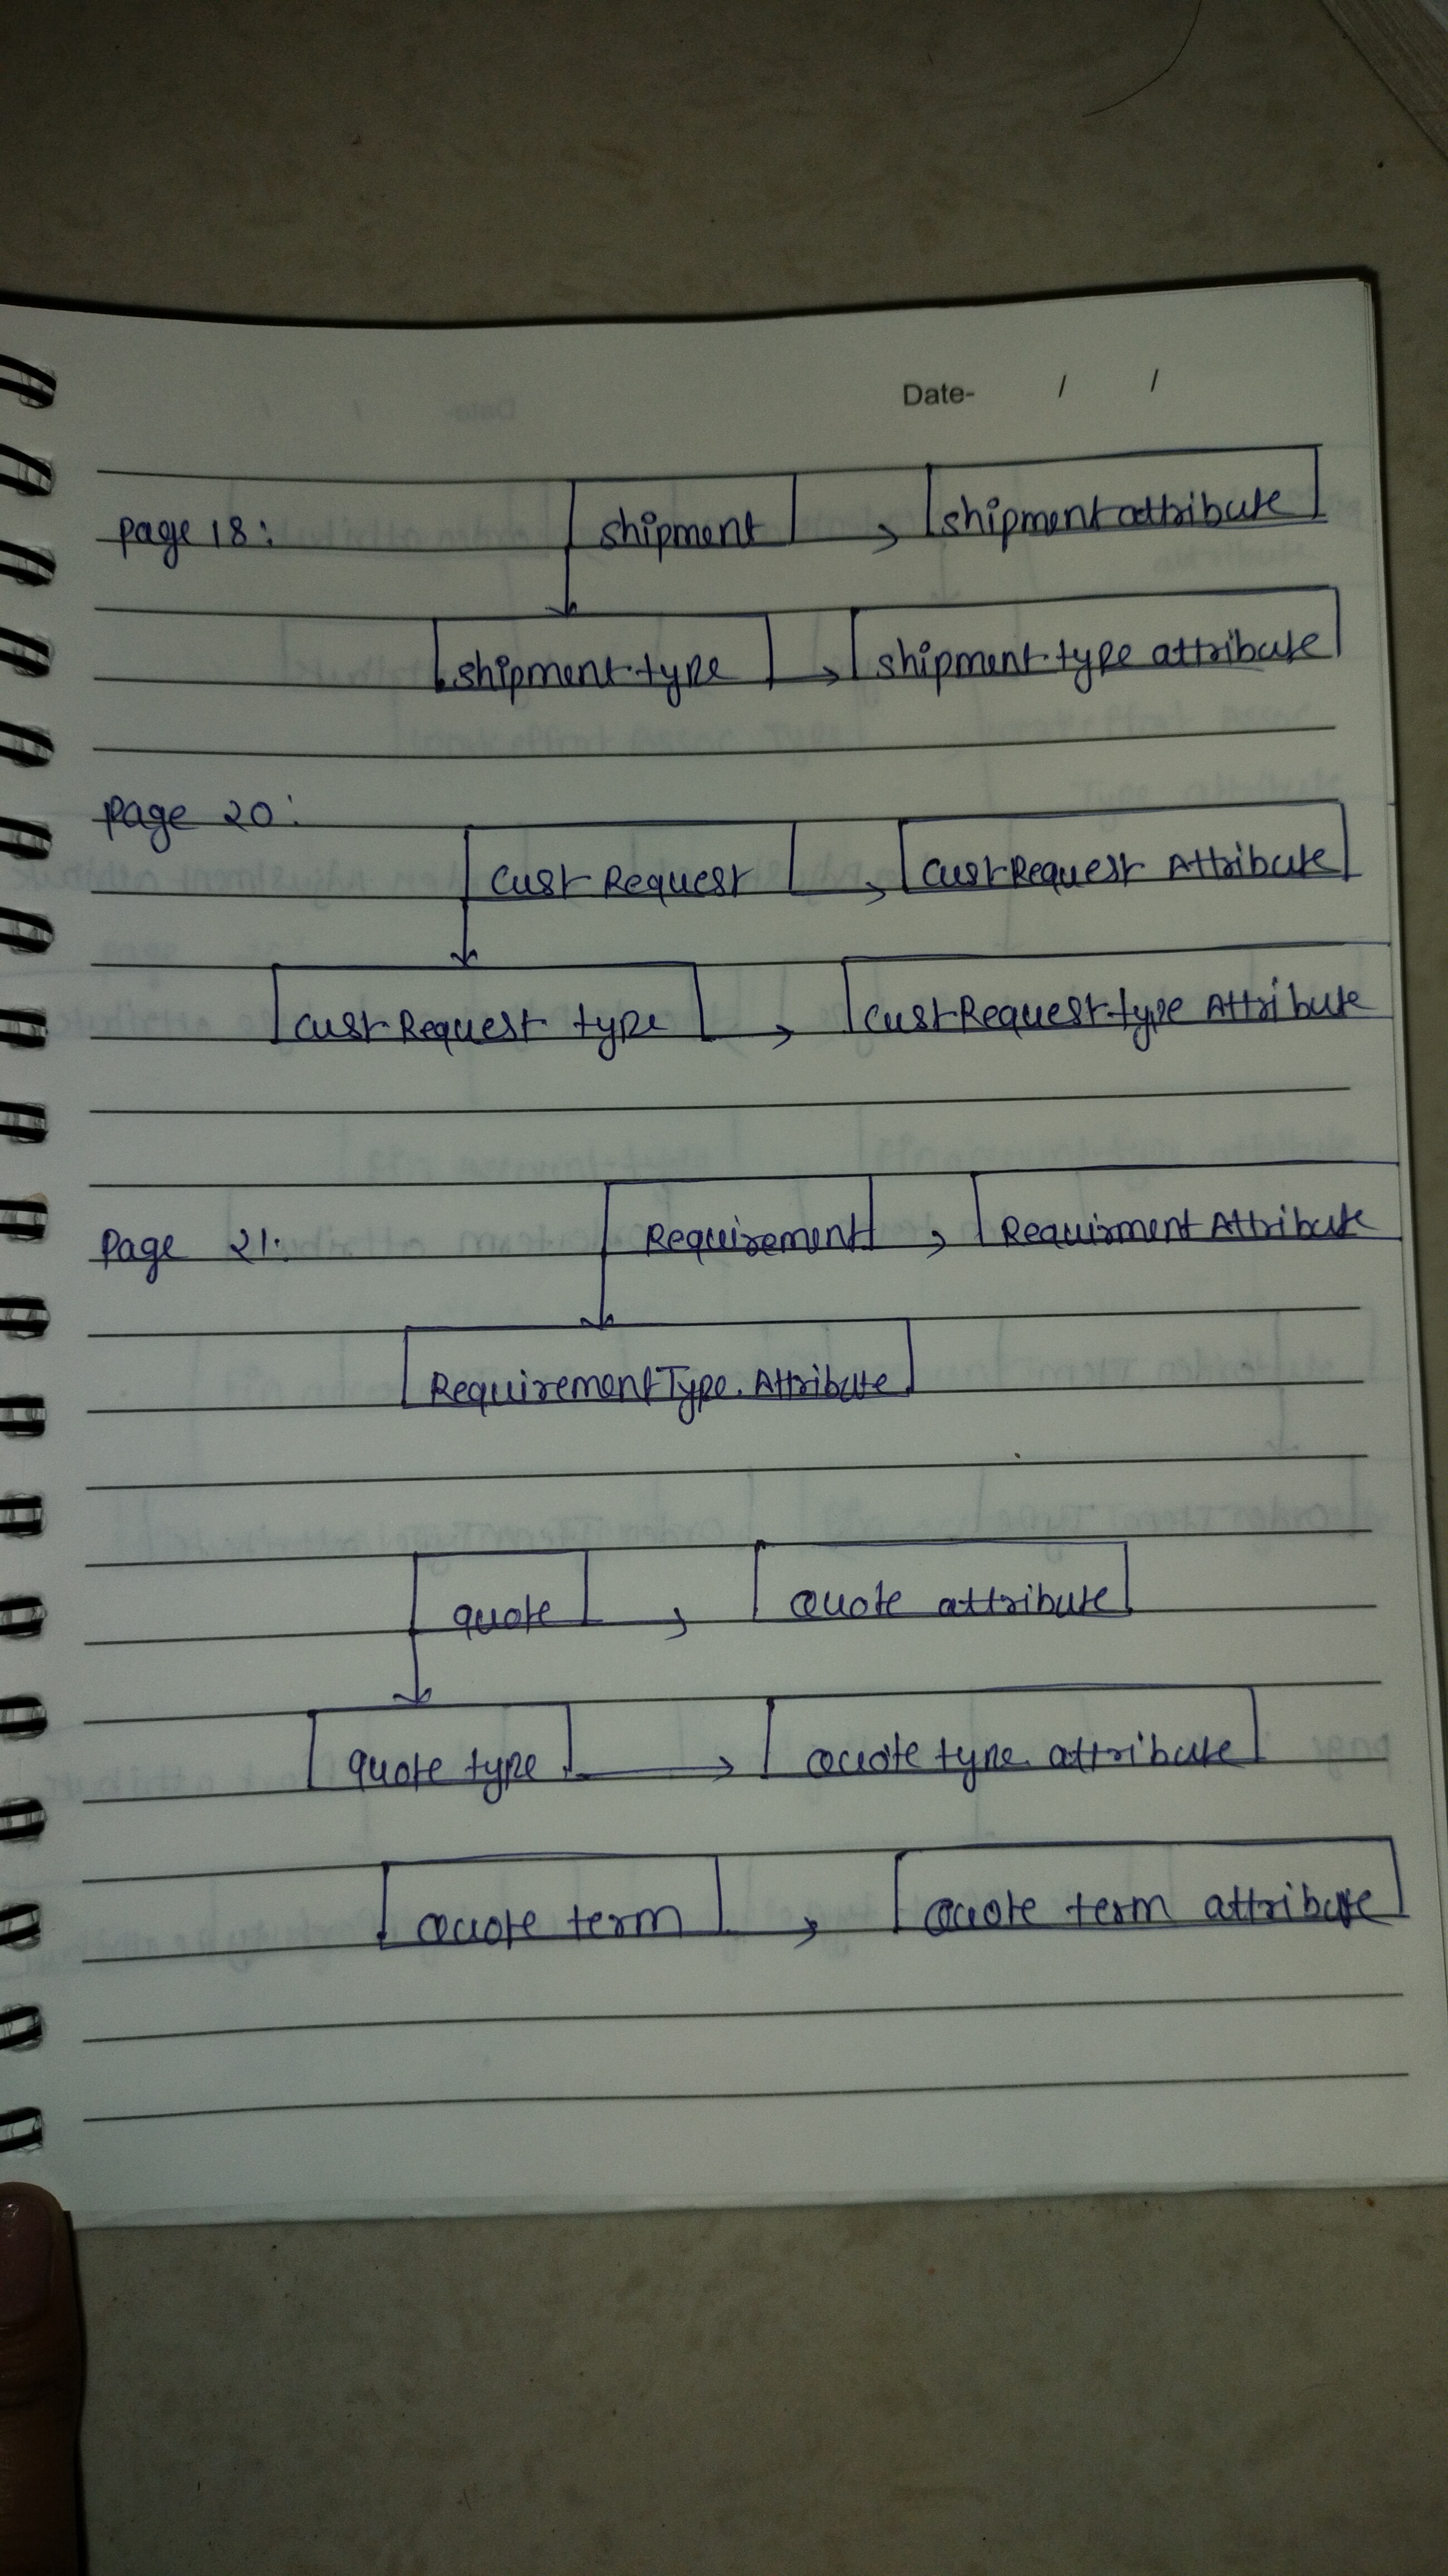 Date- / /
page 18: shipment shipment attribute
shipment type shipment type attribute
page 20:
Cust Request Cust Request Attribute
Cust Request type Cust Request type Attribute
Page 21: Requirement Requirment Attribute
Requirement Type Attribute
quote Quote attribute
quote type Quote type attribute
Quote term Quote term attribute